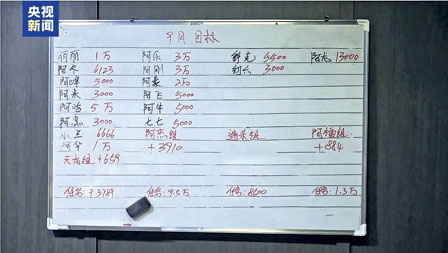 央视
新闻
9月目标
丽丽 1万 阿乐 3万 5500 阿龙 13000
阿冬 6123 阿刚 3万 3000
阿峰 5000 阿豪 2万
阿永 3000 阿飞 5000
阿鸿 5万 阿牛 5000
3000 七七 5000
小兰 6666 阿杰组
阿华 1万 +3910 +884
天龙组 +659
任务: 9.3789 任务: 9.5万 任务: 8500 任务: 1.3万